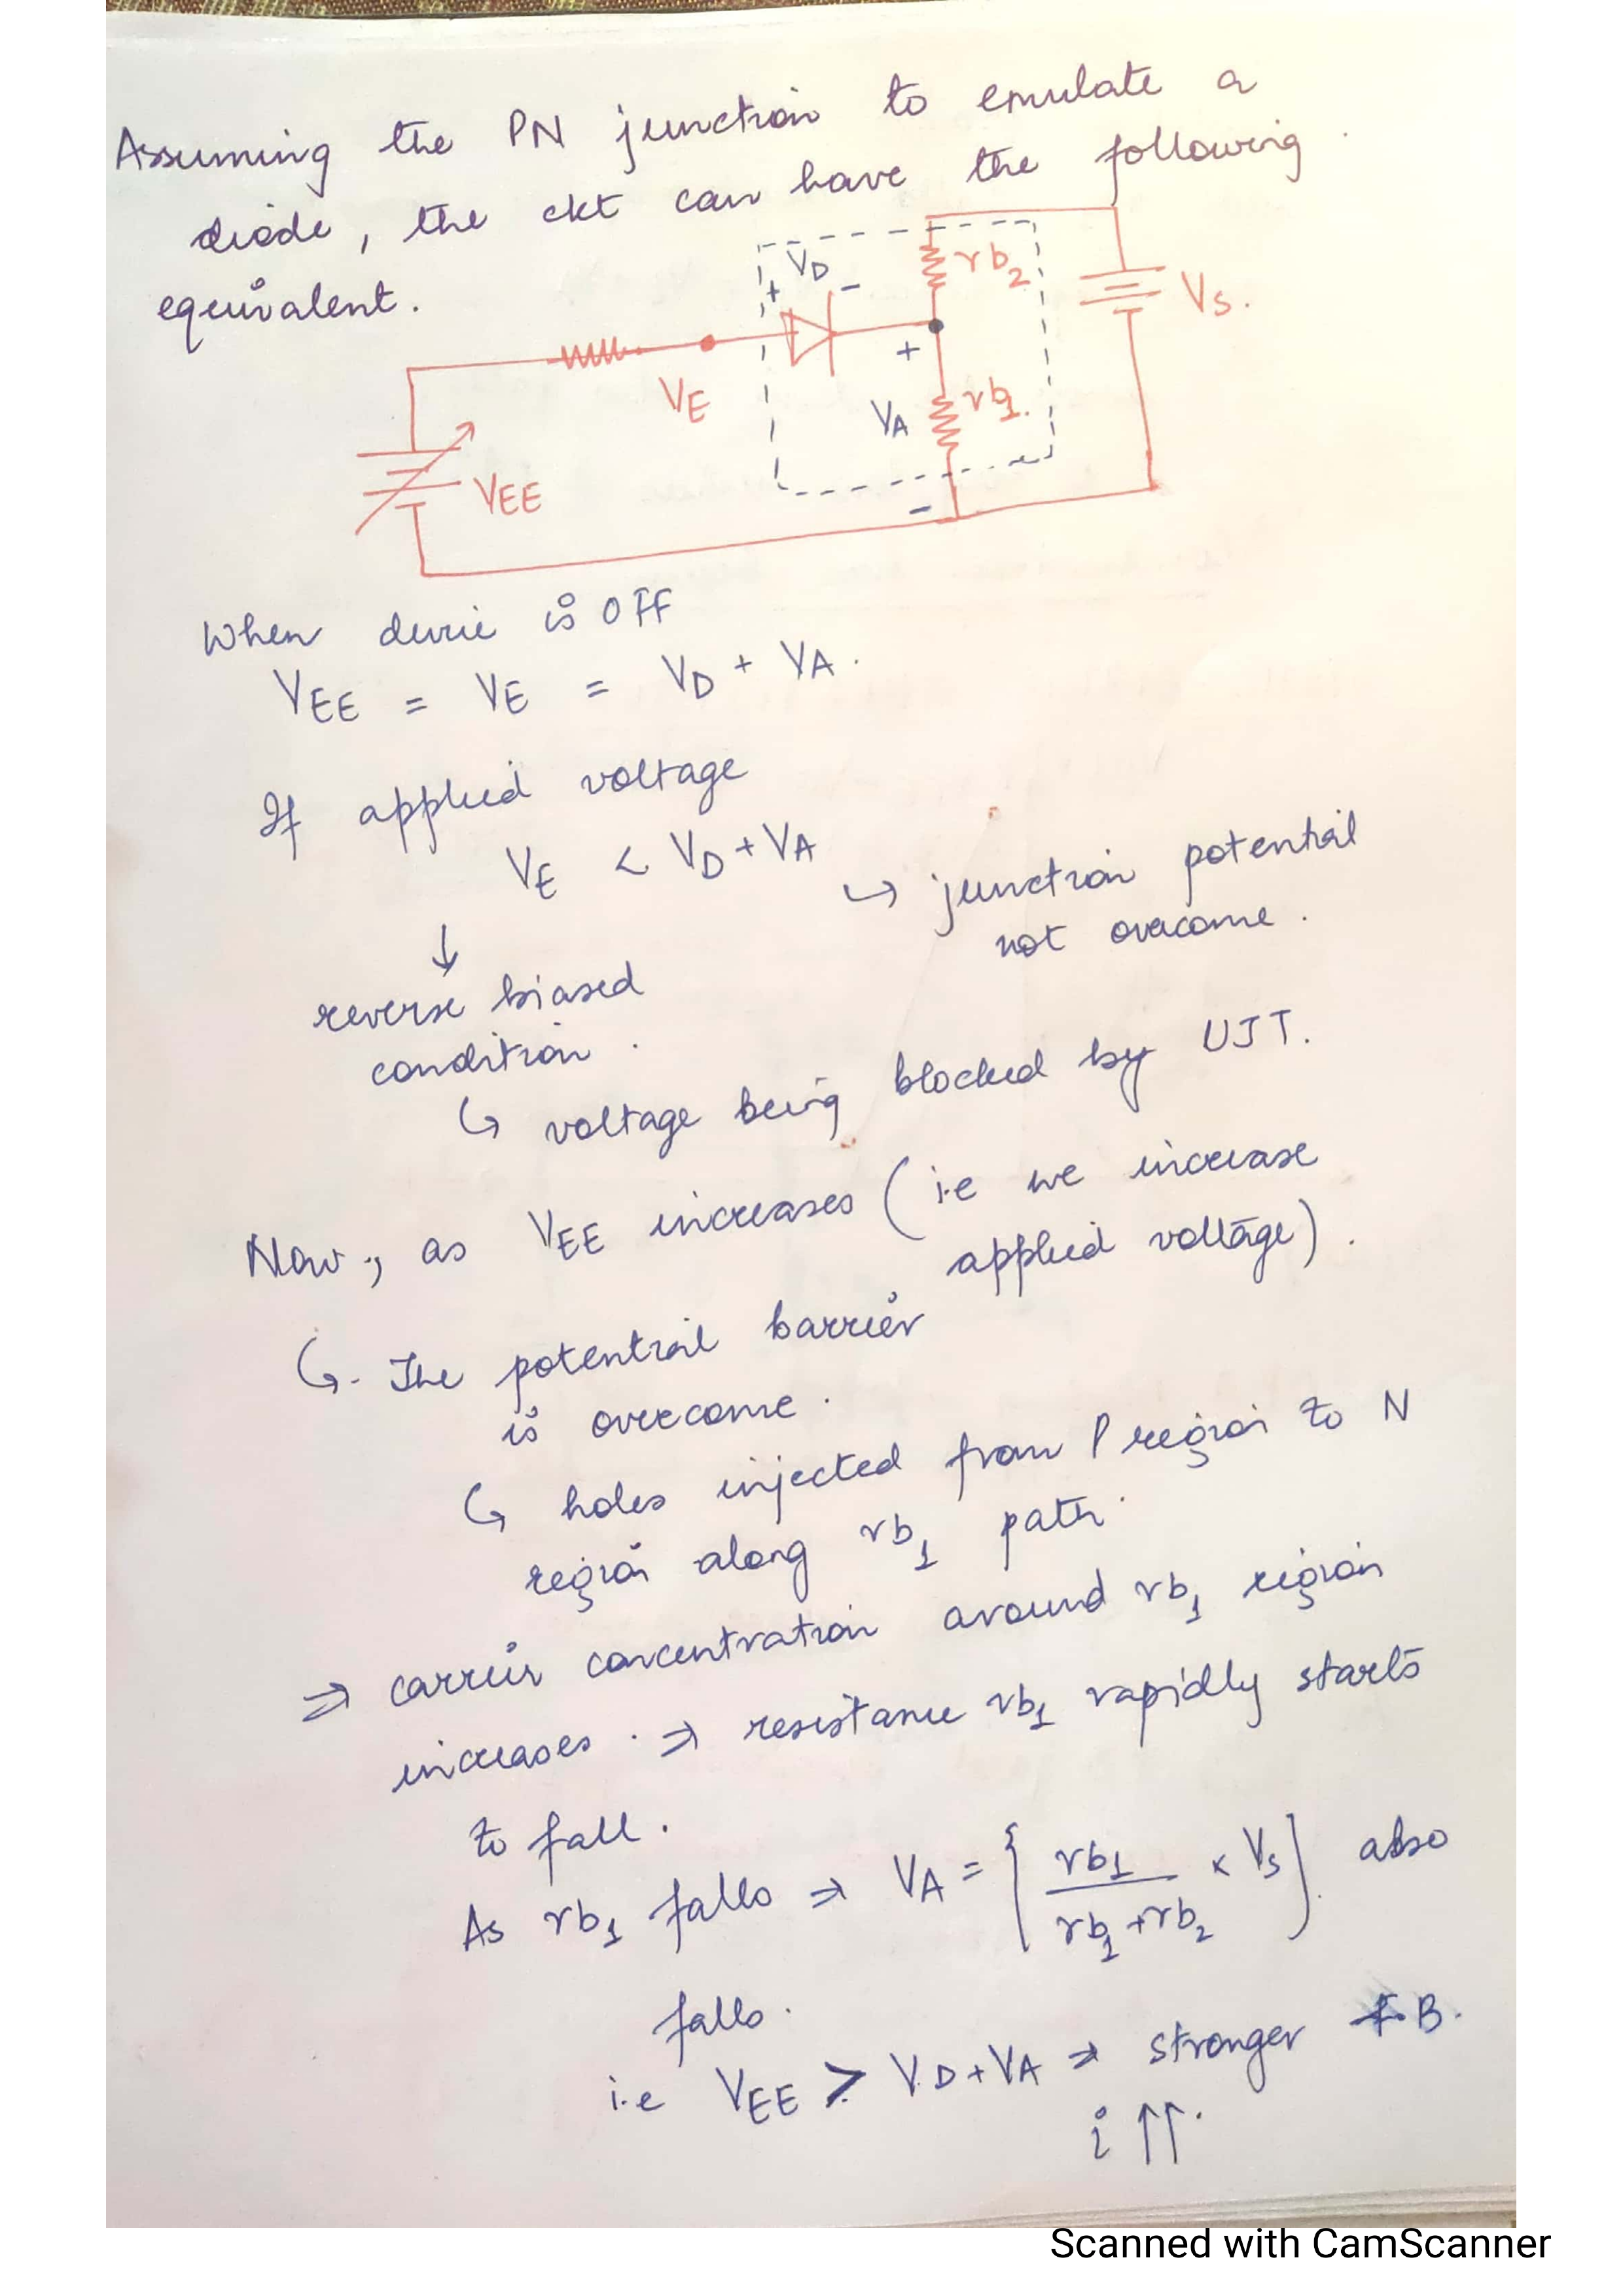 Assuming the PN junction to emulate a
diode, the ckt can have the following.
equivalent.
VD
+ -
rb2
VS.
+
VE
VA
rb1.
VEE
-
When device is OFF
VEE = VE = VD + VA.
If applied voltage
VE < VD + VA
↳ junction potential
not overcome.
↓
reverse biased
condition.
↳ voltage being blocked by UJT.
Now, as VEE increases (i.e we increase
applied voltage).
↳. The potential barrier
is overcome.
↳ holes injected from P region to N
region along rb1 path.
⇒ carrier concentration around rb1 region
increases. ⇒ resistance rb1 rapidly starts
to fall.
As rb1 falls ⇒ VA = { rb1 / rb1+rb2 × Vs } also
falls.
i.e VEE > VD+VA ⇒ stronger F.B.
i ↑↑.
Scanned with CamScanner